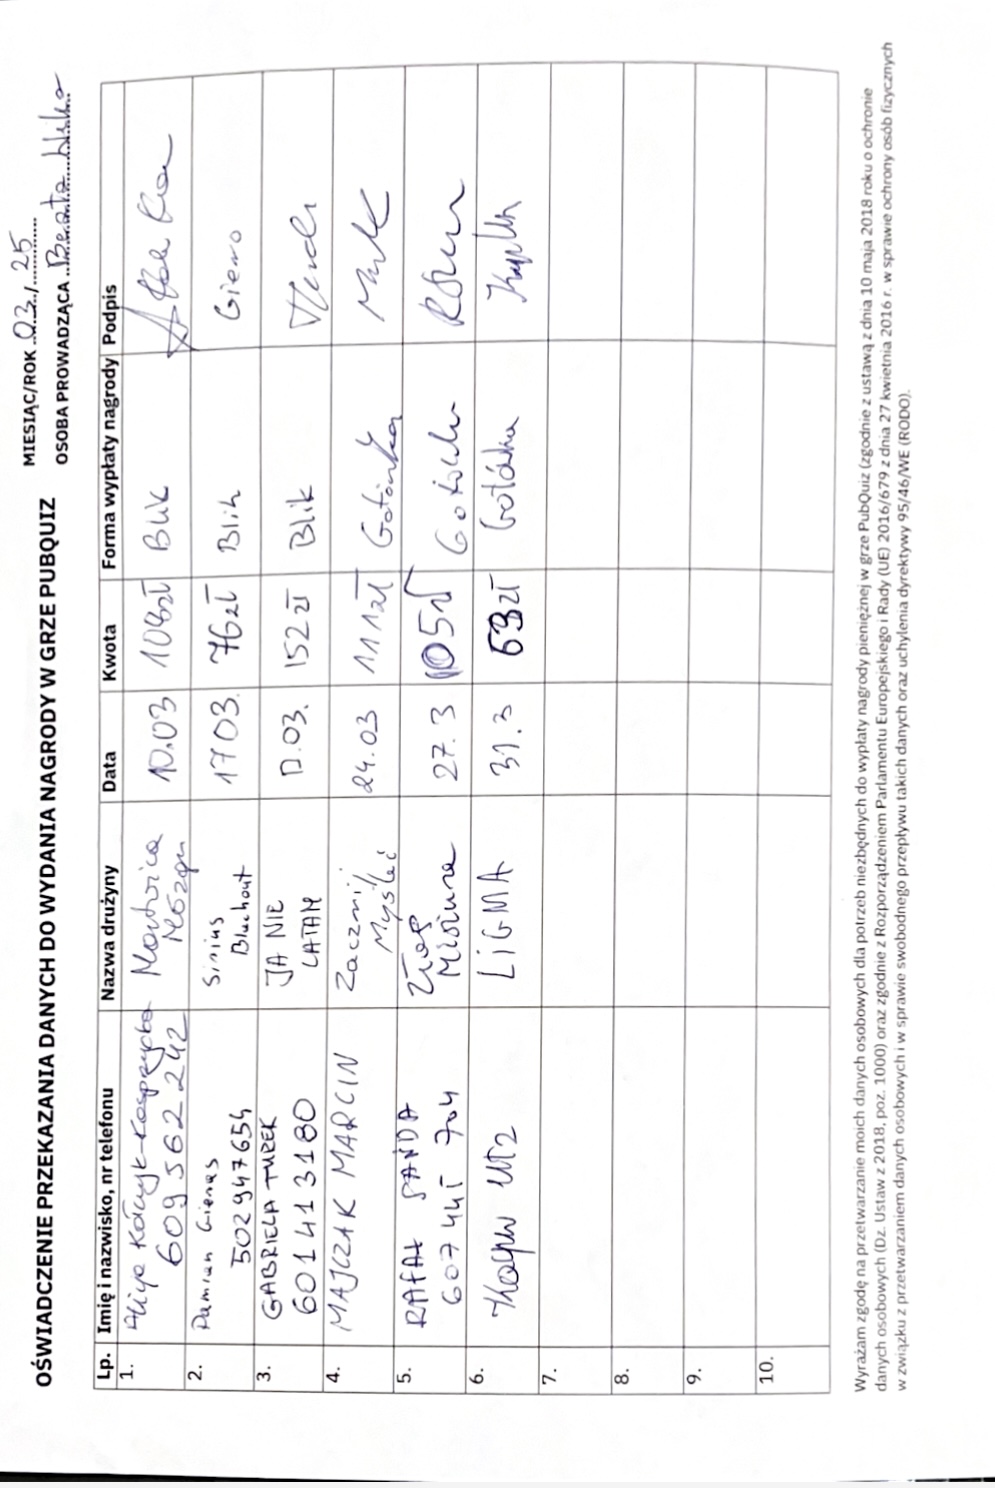 MIESIĄC/ROK 03 / 25
OŚWIADCZENIE PRZEKAZANIA DANYCH DO WYDANIA NAGRODY W GRZE PUBQUIZ
OSOBA PROWADZĄCA Beata
Lp. Imię i nazwisko, nr telefonu Nazwa drużyny Data Kwota Forma wypłaty nagrody Podpis
1. Alicja
609562242 10.03 108zł Blik
2. Damian Gieras Sirius
502947654 Blackout 1703. 76zł Blik
3. GABRIELA TUREK JA NIE
601413180 LATAM 17.03. 152 zł Blik
4. MAJCZAK MARCIN Zacznij
Myśleć 24.03 111zł Gotówka
5. RAFAŁ
607 445 704 27.3 105zł
6. Kacper LIGMA 31.3 Gotówka
7.
8.
9.
10.
Wyrażam zgodę na przetwarzanie moich danych osobowych dla potrzeb niezbędnych do wypłaty nagrody pieniężnej w grze PubQuiz (zgodnie z ustawą z dnia 10 maja 2018 roku o ochronie
danych osobowych (Dz. Ustaw z 2018, poz. 1000) oraz zgodnie z Rozporządzeniem Parlamentu Europejskiego i Rady (UE) 2016/679 z dnia 27 kwietnia 2016 r. w sprawie ochrony osób fizycznych
w związku z przetwarzaniem danych osobowych i w sprawie swobodnego przepływu takich danych oraz uchylenia dyrektywy 95/46/WE (RODO).